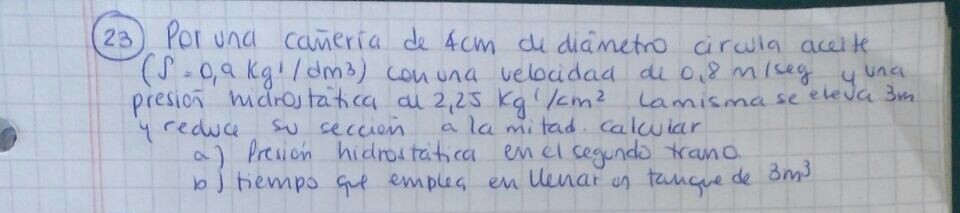 23 Por una cañería de 4cm de diámetro circula aceite
(δ = 0,9 Kg'/dm3) con una velocidad de 0,8 m/seg y una
presión hidrostática de 2,25 Kg'/cm2 La misma se eleva 3m
y reduce su sección a la mitad. calcular
a) Presión hidrostática en el segundo tramo
b) tiempo que emplea en llenar un tanque de 3m3